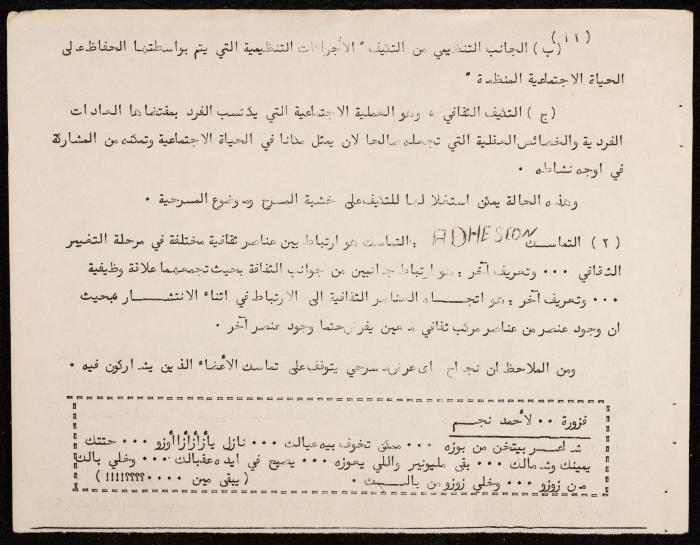 (١١)
(ب) الجانب التنظيمي من التكيف " الأجراءات التنظيمية التي يتم بواسطتها الحفاظ على
الحياة الاجتماعية المنظمة "
(ج) التكيف الثقافي ، وهو العملية الاجتماعية التي يكتسب الفرد بمقتضاها العادات
الفردية والخصائص العقلية التي تجعله صالحا لان يمثل مكانا في الحياة الاجتماعية وتمكنه من المشاركة
في اوجه نشاطه .
وهذه الحالة يمكن استغلالها للتكيف على خشبة المسرح وموضوع المسرحية .
(٢) التماسك ADHESION : التماسك هو ارتباط بين عناصر ثقافية مختلفة في مرحلة التغيير
الثقافي ... وتعريف آخر : هو ارتباط جانبين من جوانب الثقافة بحيث تجمعهما علاقة وظيفية
... وتعريف آخر : هو اتجاه العناصر الثقافية الى الارتباط في اثناء الانتشار بحيث
ان وجود عنصر من عناصر مركب ثقافي معين يفرض حتما وجود عنصر آخر .
ومن الملاحظ ان نجاح اى عرض مسرحي يتوقف على تماسك الأعضاء الذين يشاركون فيه .
فزورة .. لأحمد نجم
شاعر بيتخن من بوزه ... ممكن تخوف بيه عيالك ... نازل يأزأزأزاأوزو ... حتتك
يمينك وشمالك ... بقى مليونير واللي يعوزه ... يصبح في ايده عقبالك ... وخلي بالك
من زوزو ... وخلي زوزو من بالك . (يبقى مين ....؟؟؟؟!!!!!)